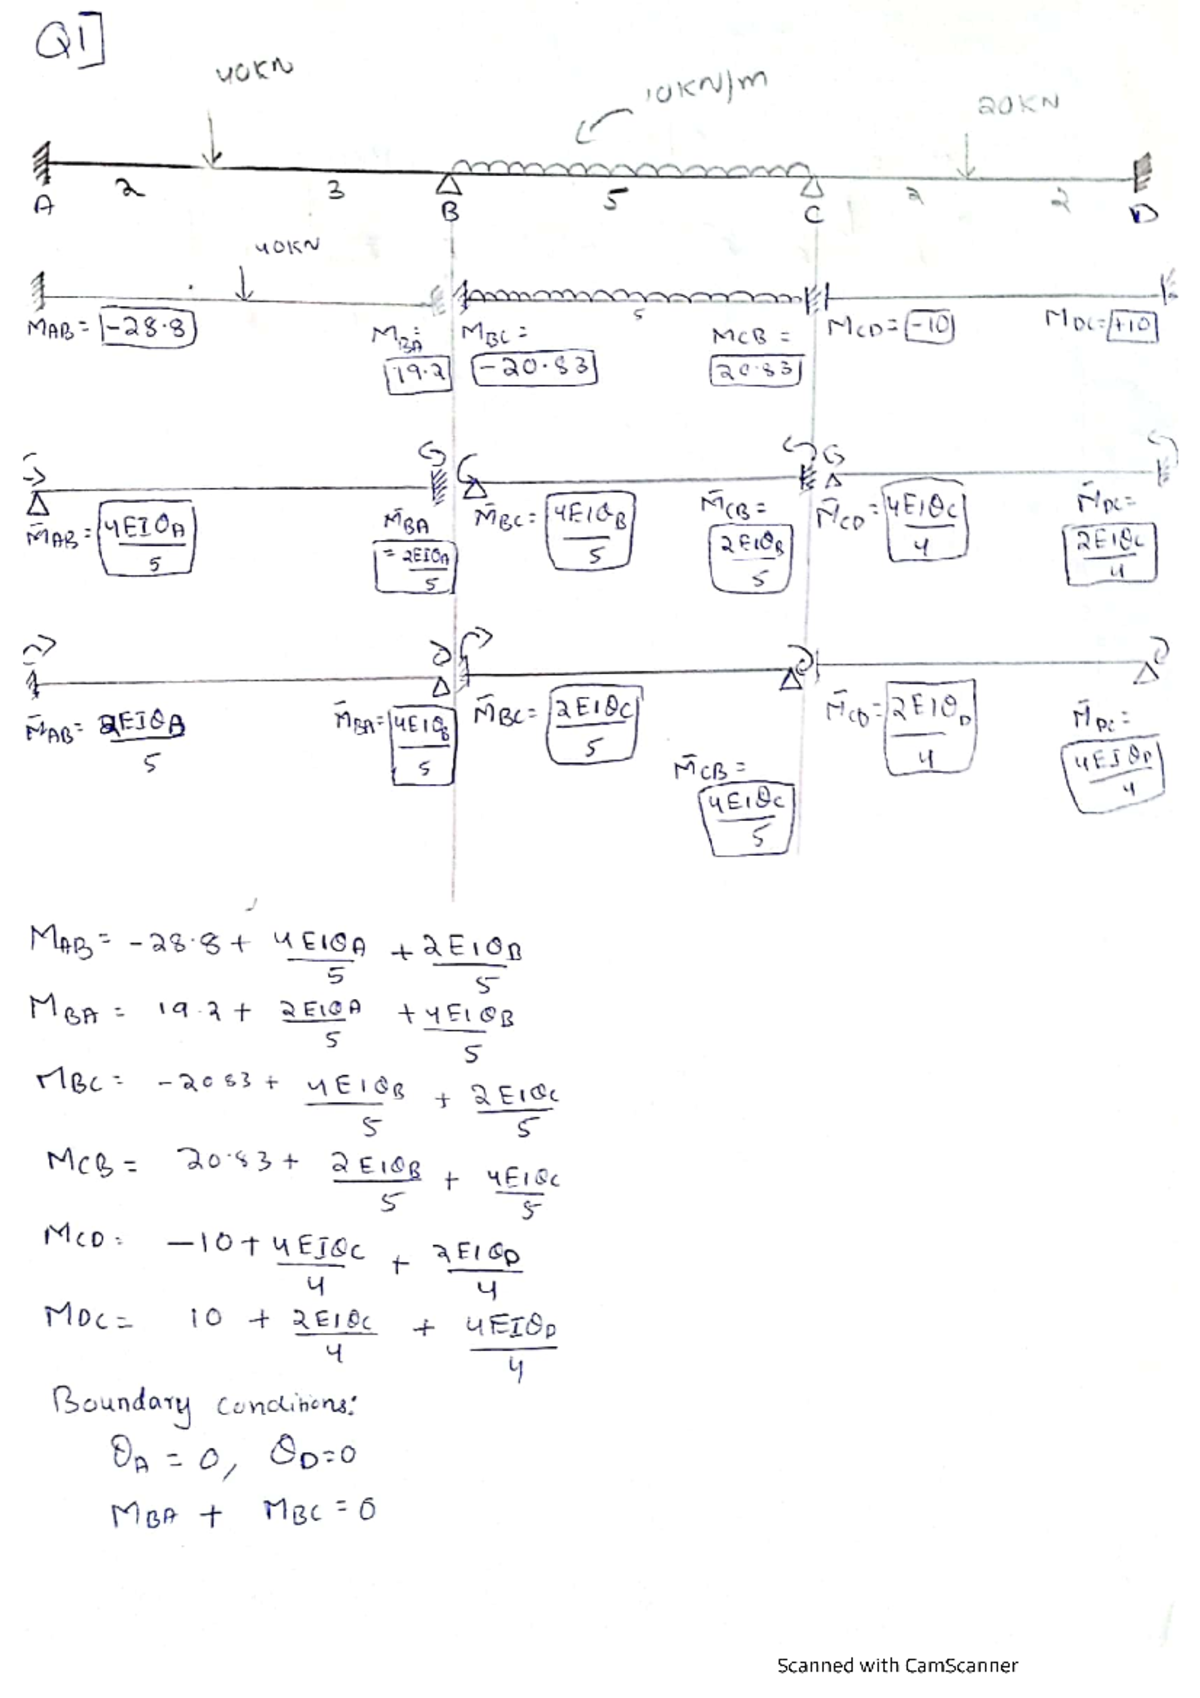 Q1]
40KN
10KN/m
20KN
2 3 5 2 2
A B C D
40KN
5
MAB = -28.8 MBA = 19.2 MBC = -20.83 MCB = 20.83 MCD = -10 MDC = +10
M̄AB = 4EIθA/5 M̄BA = 2EIθA/5 M̄BC = 4EIθB/5 M̄CB = 2EIθB/5 M̄CD = 4EIθC/4 M̄DC = 2EIθC/4
M̄AB = 2EIθA/5 M̄BA = 4EIθB/5 M̄BC = 2EIθC/5 M̄CB = 4EIθC/5 M̄CD = 2EIθD/4 M̄DC = 4EIθD/4
MAB = -28.8 + 4EIθA/5 + 2EIθB/5
MBA = 19.2 + 2EIθA/5 + 4EIθB/5
MBC = -20.83 + 4EIθB/5 + 2EIθC/5
MCB = 20.83 + 2EIθB/5 + 4EIθC/5
MCD = -10 + 4EIθC/4 + 2EIθD/4
MDC = 10 + 2EIθC/4 + 4EIθD/4
Boundary conditions:
θA = 0, θD = 0
MBA + MBC = 0
Scanned with CamScanner